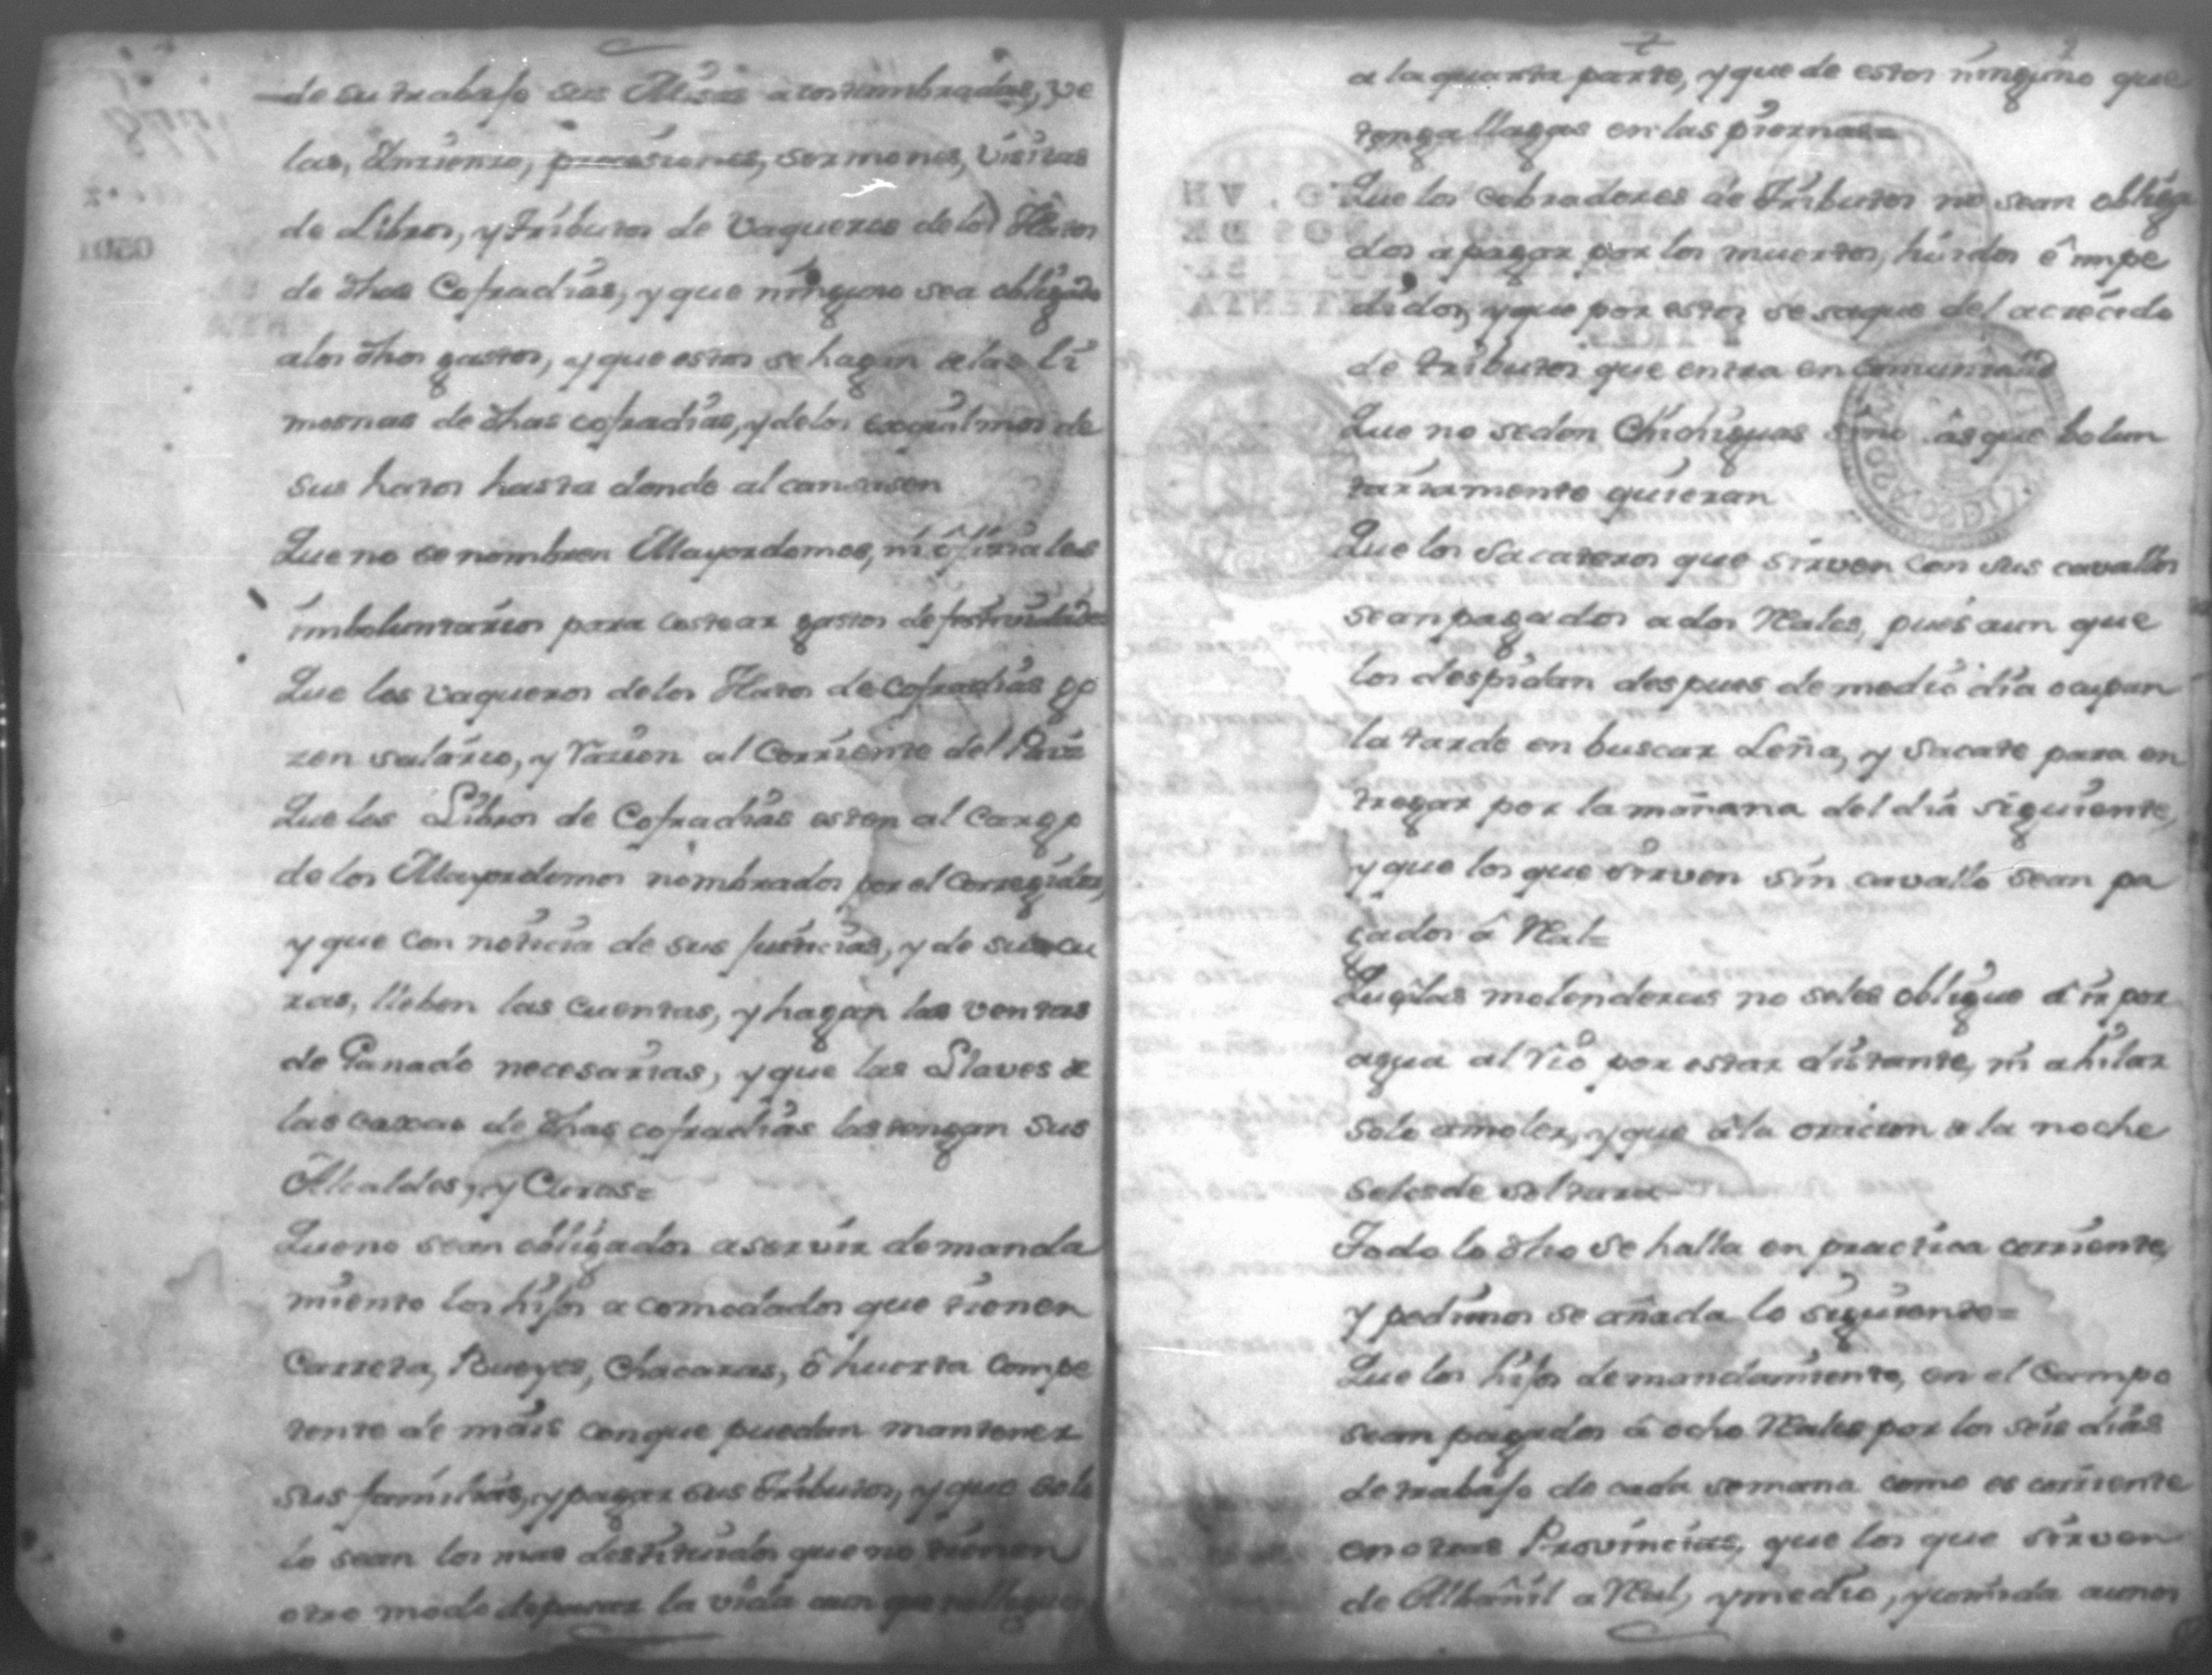 de su trabajo sus Misas acostumbradas, ve
las, Inzienzo, procesiones, sermones, visitas
de Libros, y tributos de Vaqueros de los Hatos
de dhas Cofradias, y que ninguno sea obligado
a los dhos gastos, y que estos se hagan de las li
mosnas de dhas cofradias, y de los esquilmos de
sus hatos hasta donde alcansasen
Que no se nombren Mayordomos, ni ofiziales
imboluntarios para costear gastos de festividades
Que los vaqueros de los Hatos de Cofradias go
zen salario, y razion al Corriente del Pais
Que los Libros de Cofradias esten al Cargo
de los Mayordomos nombrados por el Corregidor,
y que con noticia de sus Justicias, y de sus cu
ras, lleben las cuentas, y hagan las ventas
de Ganado necesarias, y que las Llaves de
las caxas de dhas cofradias las tengan sus
Alcaldes, y Curas=
Que no sean obligados a servir de manda
miento los hijos acomodados que tienen
Carreta, Bueyes, Chacaras, ô huerta Compe
tente de mais con que puedan mantener
sus familias, y pagar sus tributos, y que solo
lo sean los mas destituidos que no tienen
otro modo de pasar la vida aun que no lleguen
a la quarta parte, y que de estos ninguno que
tenga llagas en las piernas=
Que los cobradores de Tributos no sean obliga
dos a pagar por los muertos, huidos ê impe
didos, y que por estos se saque del acrecido
de tributos que entra en Comunidad
Que no se den Chichiguas sino âs que bolun
tariamente quieran
Que los Sacateros que sirven con sus cavallos
sean pagados a dos Rales, pues aun que
los despidan despues de medio dia ocupan
la tarde en buscar Leña, y Sacate para en
tregar por la mañana del dia siguiente,
y que los que sirven sin cavallo sean pa
gados â Ral=
Que â las molenderas no seles obligue â ir por
agua al rio por estar distante, ni a hilar
solo a moler, y que â la oracion de la noche
seles de soltura=
Todo lo dho se halla en practica corriente,
y pedimos se añada lo siguiente=
Que los hijos de mandamiento, en el Campo
sean pagados â ocho Rales por los seis dias
de trabajo de cada semana como es corriente
en otras Provincias, que los que sirven
de Albañil a Ral, y medio, y comida aunos